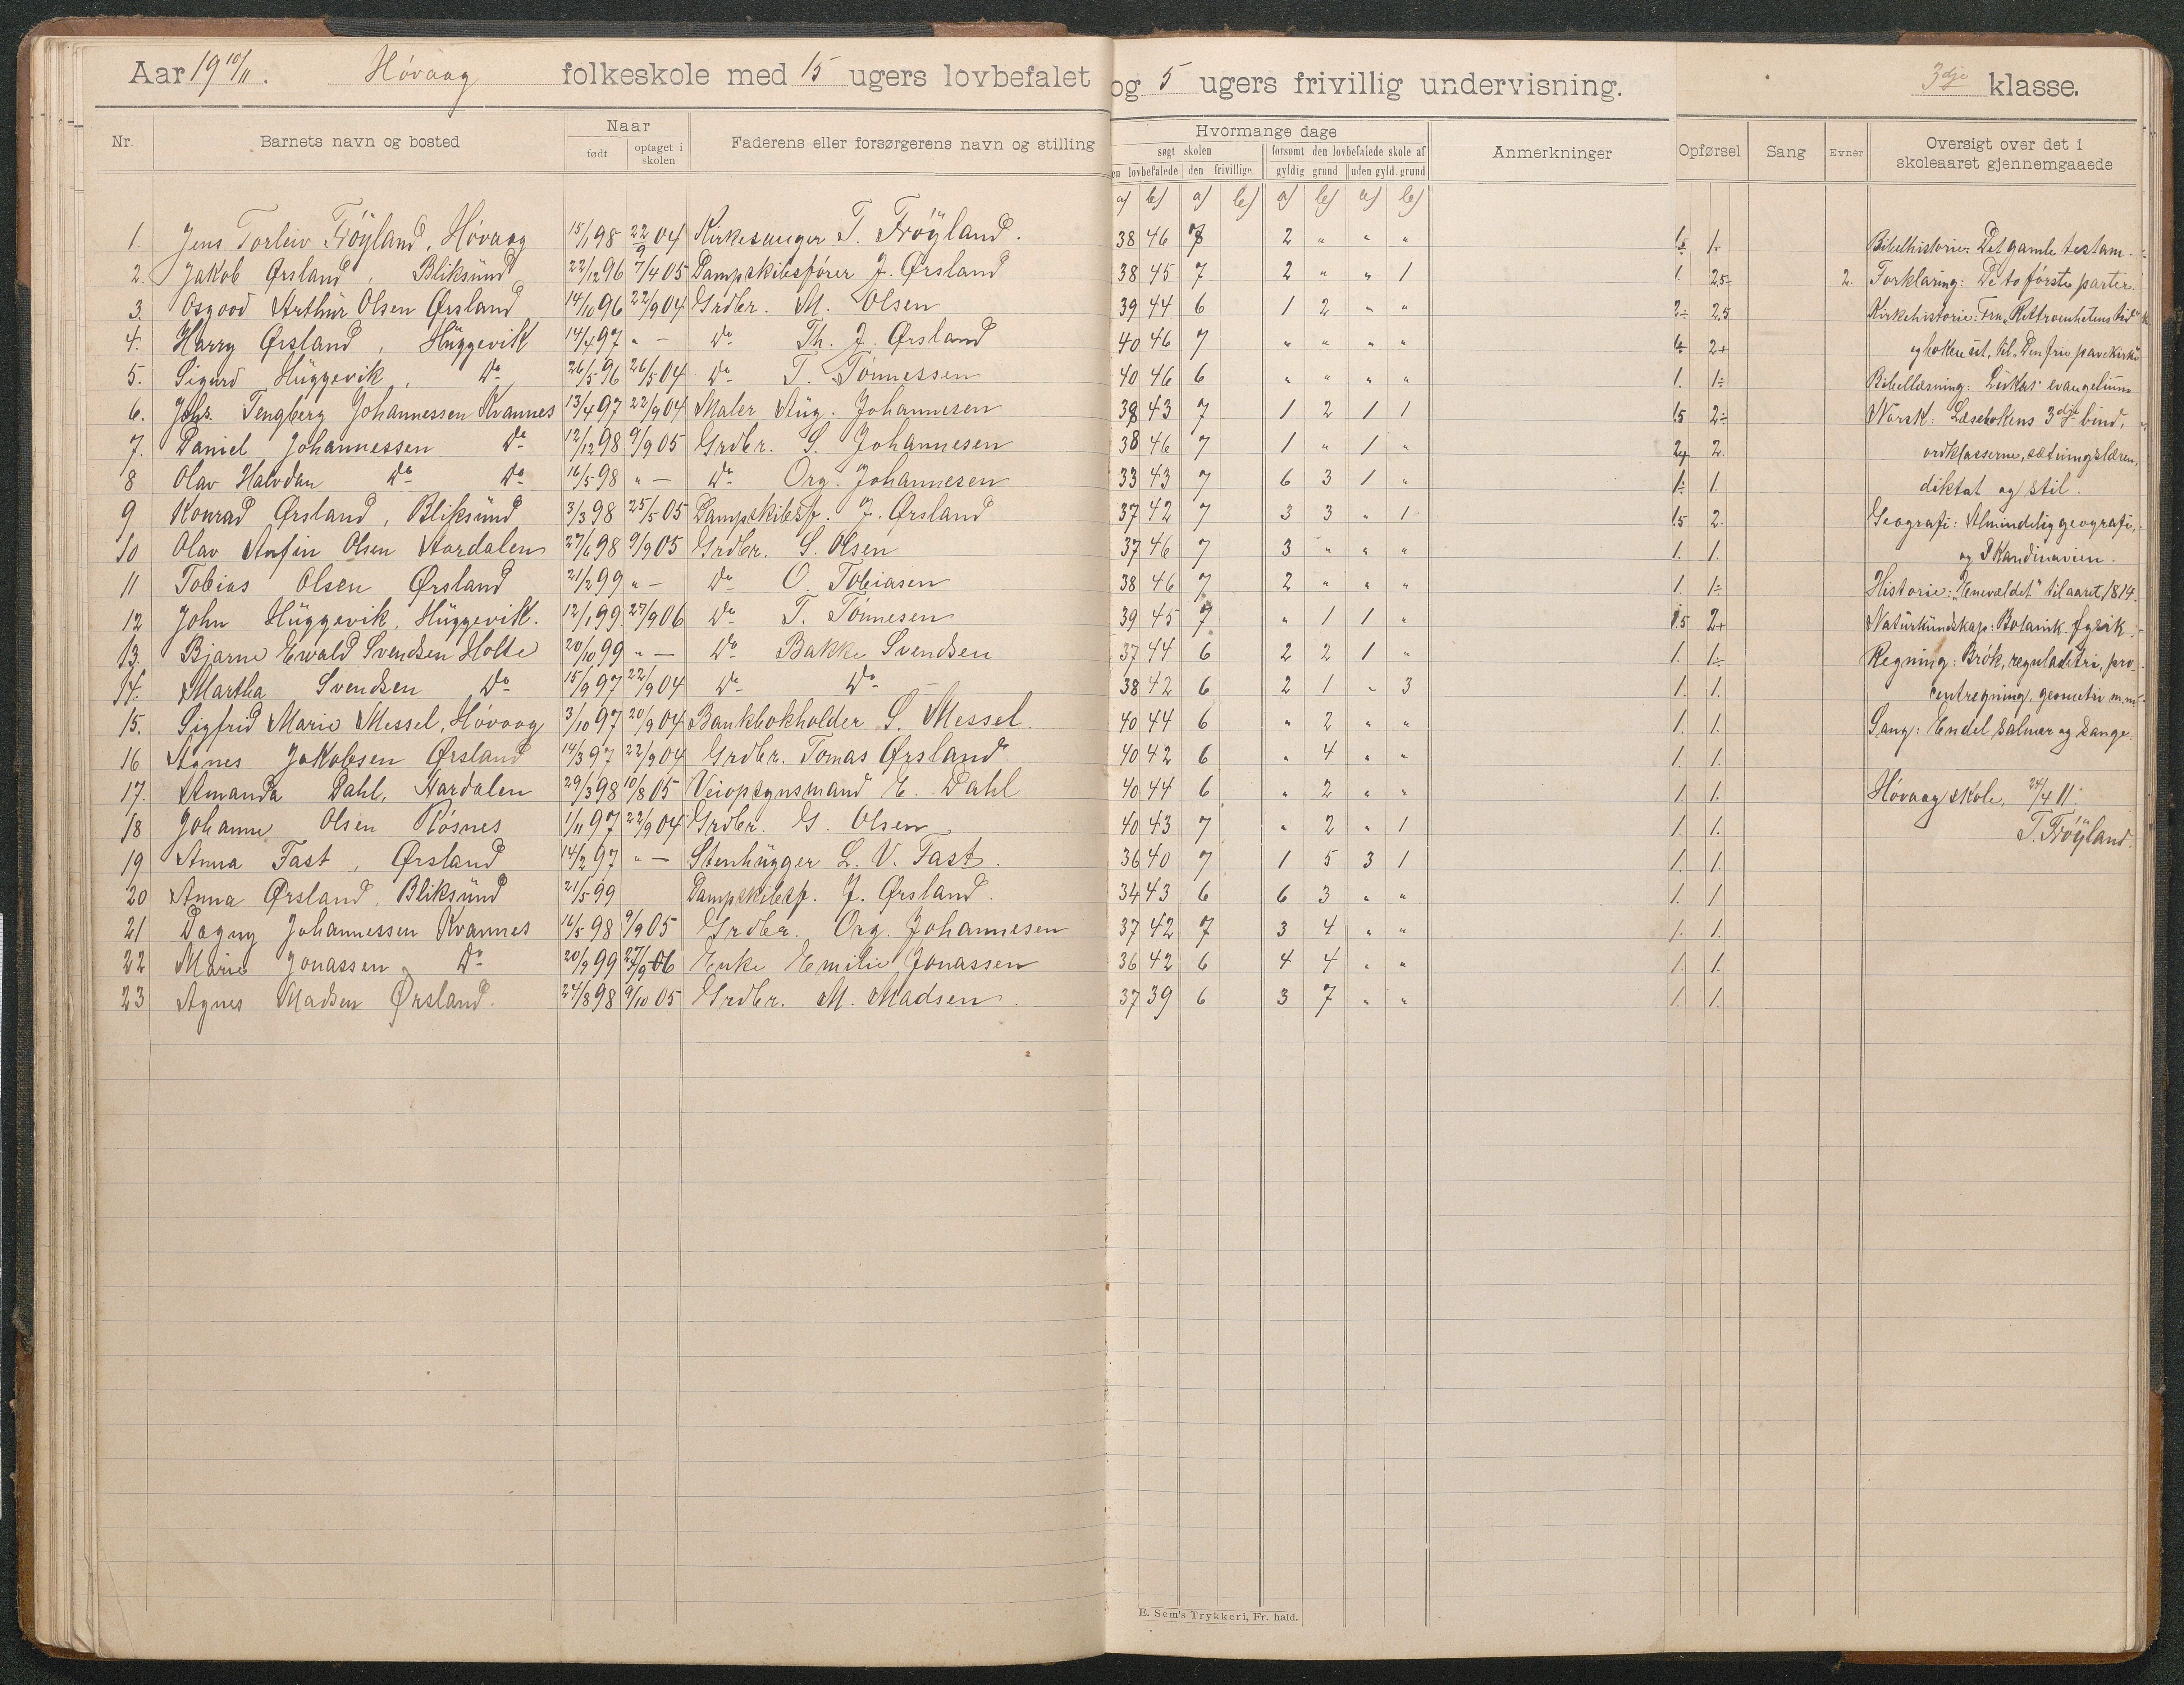 Aar 19 10/11. Høvaag folkeskole med 15 ugers lovbefalet og 5 ugers frivillig undervisning. 3dje klasse.
Nr. Barnets navn og bosted Naar født optaget i skolen Faderens eller forsørgerens navn og stilling Hvormange dage søgt skolen den lovbefalede den frivillige forsømt den lovbefalede skole af gyldig grund uden gyld. grund Anmerkninger Opførsel Sang Evner Oversigt over det i skoleaaret gjennemgaaede
a) b) a) b) a) b) a) b)
1. Jens Torleiv Frøyland, Høvaag 15/1 98 22/9 04 Kirkesanger T. Frøyland. 38 46 7 2 " " " 1. Bibelhistorie: Det gamle testam.
2. Jakob Ørsland, Bliksund 22/12 96 7/4 05 Dampskibsfører J. Ørsland 38 45 7 2 " " 1 1. 2,5÷ 2. Forklaring: De to første parter.
3. Osgood Arthur Olsen Ørsland 14/10 96 22/9 04 Grdbr. M. Olsen 39 44 6 1 2 " " 2÷ 2,5 Kirkehistorie: Fra "Rettroenhetens tid"
4. Harry Ørsland, Huggevik 14/4 97 " — Do Th. J. Ørsland 40 46 7 " " " " 2+ boken ut, til "Den frie pavekirke"
5. Sigurd Huggevik, Do 26/5 96 26/5 04 Do T. Tønnessen 40 46 6 " " " " 1. 1÷ Bibellæsning: Lukas' evangelium
6. Johs. Tengberg Johannessen Kvannes 13/4 97 22/9 04 Maler Aug. Johannesen 38 43 7 1 2 1 1 1,5 2÷ Norsk: Læsebokens 3dje bind,
7. Daniel Johannessen Do 12/12 98 9/9 05 Grdbr. S. Johannesen 38 46 7 1 " 1 " 2+ 2. ordklasserne, sætningslæren,
8 Olav Halvdan Do Do 16/5 98 " — Do Org. Johannesen 33 43 7 6 3 1 " 1÷ 1. diktat og stil.
9 Konrad Ørsland, Bliksund 3/3 98 25/5 05 Dampskibsf. J. Ørsland 37 42 7 3 3 " 1 1,5 2. Geografi: Almindelig geografi,
10 Olav Anfin Olsen Aardalen 27/6 98 9/9 05 Grdbr. S. Olsen 37 46 7 3 " " " 1. 1. og Skandinavien.
11 Tobias Olsen Ørsland 21/2 99 " — Do O. Tobiasen 38 46 7 2 " " " 1. 1÷ Historie: "Enevældet" til aaret 1814.
12 John Huggevik, Huggevik. 12/1 99. 27/9 06 Do T. Tønnesen 39 45 7 " 1 1 " 1,5 2+ Naturkundskap: Botanik. fysik.
13. Bjarne Ewald Svendsen Holte 20/10 99 " — Do Bakke Svendsen 37 44 6 2 2 1 " 1. 1÷ Regning: Brøk, reguladetri, pro-
14. Martha Svendsen Do 15/9 97 22/9 04 Do Do 38 42 6 2 1 " 3 1. 1. centregning, geometri m.m.
15. Sigfrid Marie Messel, Høvaag 3/10 97 20/9 04 Bankbokholder S. Messel. 40 44 6 " 2 " " 1. 1. Sang: Endel salmer og sange.
16 Agnes Jakobsen Ørsland 14/3 97 22/9 04 Grdbr. Tomas Ørsland. 40 42 6 " 4 " " 1. 1.
17. Amanda Dahl, Aardalen 29/3 98 10/8 05 Veiopsynsmand E. Dahl 40 44 6 " 2 " " 1. 1. Høvaag skole, 24/4 11.
18 Johanne Olsen Røsnes 1/11 97 22/9 04 Grdbr. G. Olsen 40 43 7 " 2 " 1 1. 1. T. Frøyland.
19 Anna Fast, Ørsland 14/2 97 " — Stenhugger L. V. Fast. 36 40 7 1 5 3 1 1. 1.
20 Anna Ørsland, Bliksund 21/5 99 Dampskibsf. J. Ørsland. 34 43 6 6 3 " " 1. 1
21 Dagny Johannessen Kvannes 16/5 98 9/9 05 Grdbr. Org. Johannesen 37 42 7 3 4 " " 1. 1.
22 Marie Jonassen Do 20/9 99 27/9 06 Enke Emilie Jonassen 36 42 6 4 4 " " 1. 1.
23 Agnes Madsen Ørsland. 24/8 98 9/10 05 Grdbr. M. Madsen. 37 39 6 3 7 " " 1. 1.
E. Sem's Trykkeri, Fr. hald.